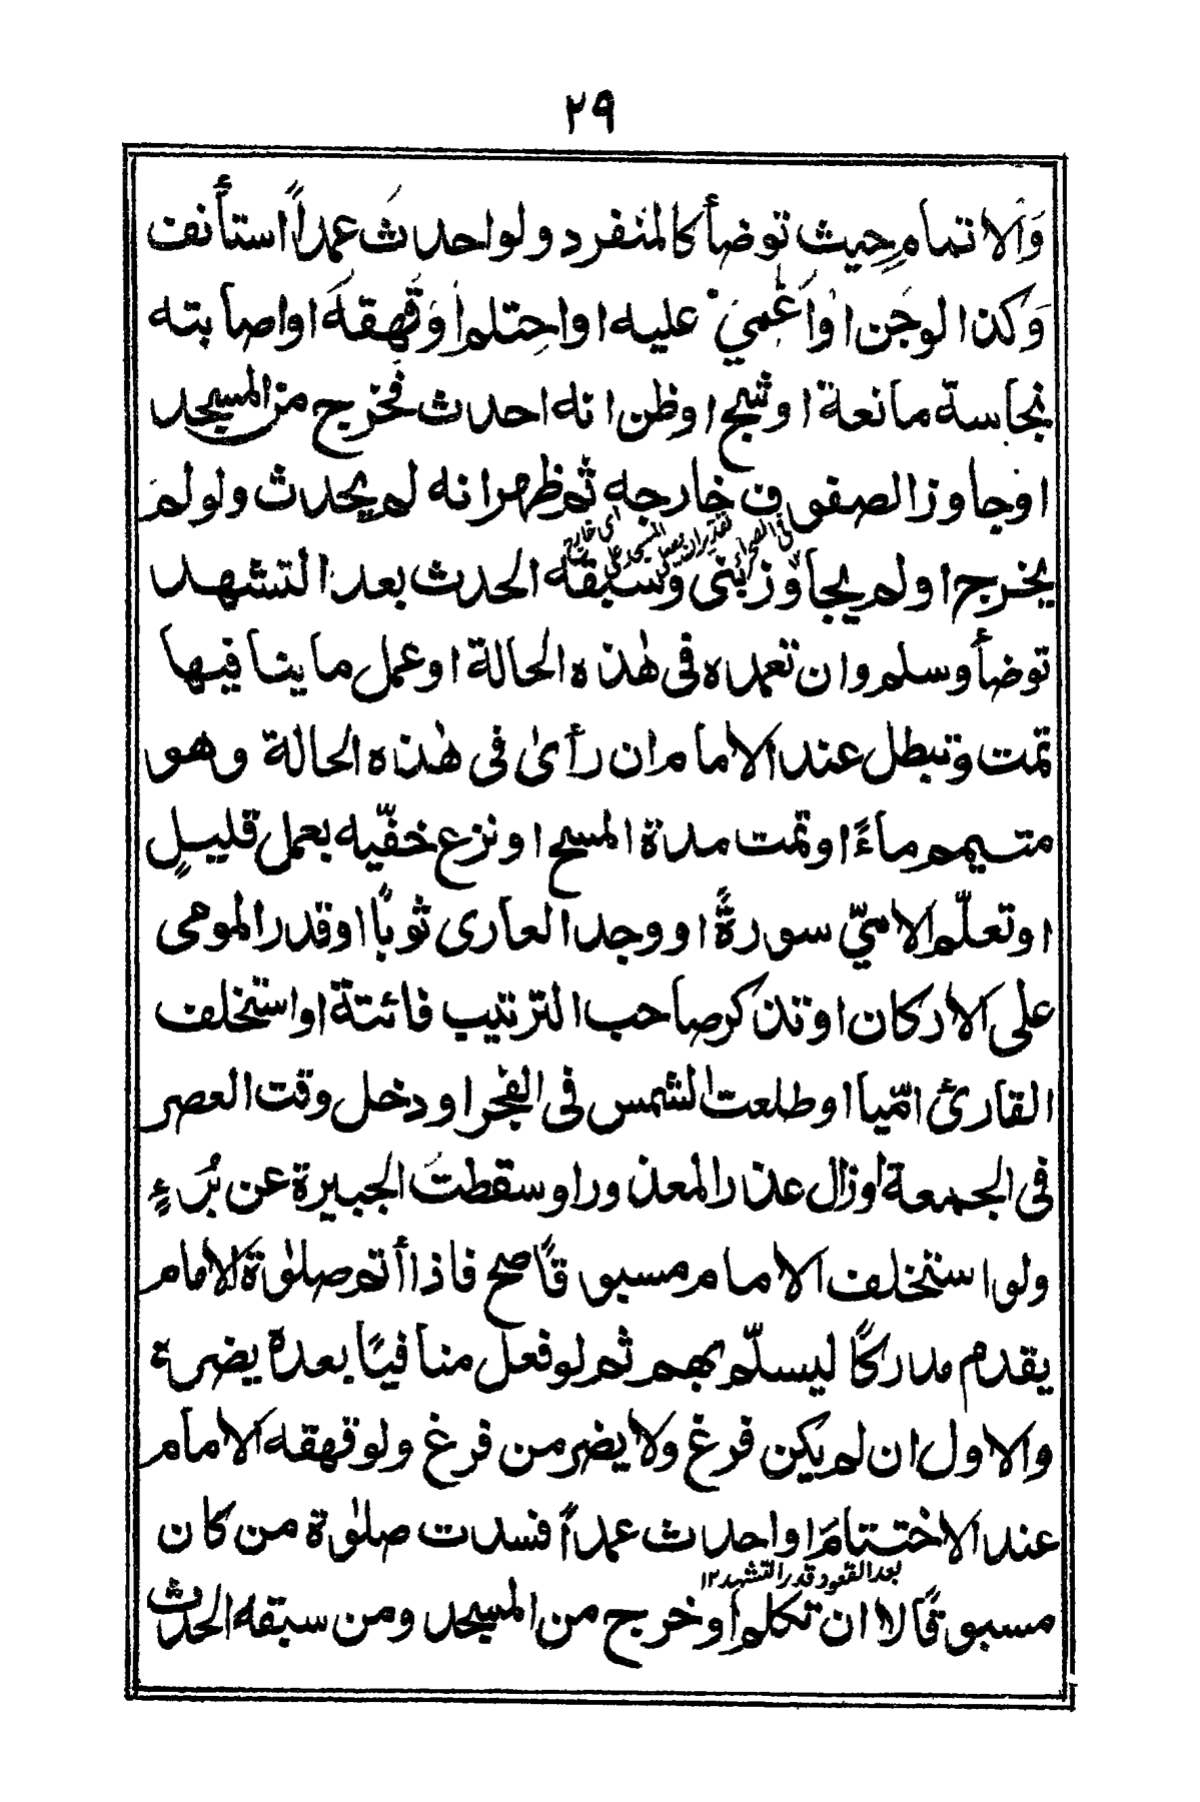 ٢٩
وَالاتمام حيث توضأ كالمنفرد ولو احدث عمداً استأنف
وَكذا لو جُن اوأغمي عليه او احتلم أوقهقهَ او اصابته
نجاسة مانعة او شج او ظن انه احدث فخرج من المسجد
او جاوز الصفوف خارجه ثم ظهر انه لم يحدث ولو لم
يخرج او لم يجاوز بنى وسبقه الحدث بعد التشهد
توضأ وسلم وان تعمده فى هٰذه الحالة او عمل ما ينافيها
تمت وتبطل عند الامام ان رأىٰ فى هٰذه الحالة وهو
متيمم ماءً او تمت مدة المسح او نزع خفّيه بعمل قليلٍ
او تعلّم الاميّ سورةً او وجد العارى ثوبًا او قدر المومى
على الاركان او تذكر صاحب الترتيب فائتة او استخلف
القارئ امّيا او طلعت الشمس فى الفجر او دخل وقت العصر
فى الجمعة او زال عذر المعذور او سقطت الجبيرة عن بُرءٍ
ولو استخلف الامام مسبوقًا صح فاذا أتم صلوٰة الامام
يقدم مدركًا ليسلّم بهم ثم لو فعل منافيًا بعدهٗ يضره
والاول ان لم يكن فرغ ولا يضر من فرغ ولو قهقه الامام
عند الاختتام او احدث عمداً فسدت صلوٰة من كان
بعد القعود قدر التشهد ١٢
مسبوقًا لا ان تكلم أو خرج من المسجد ومن سبقه الحدث